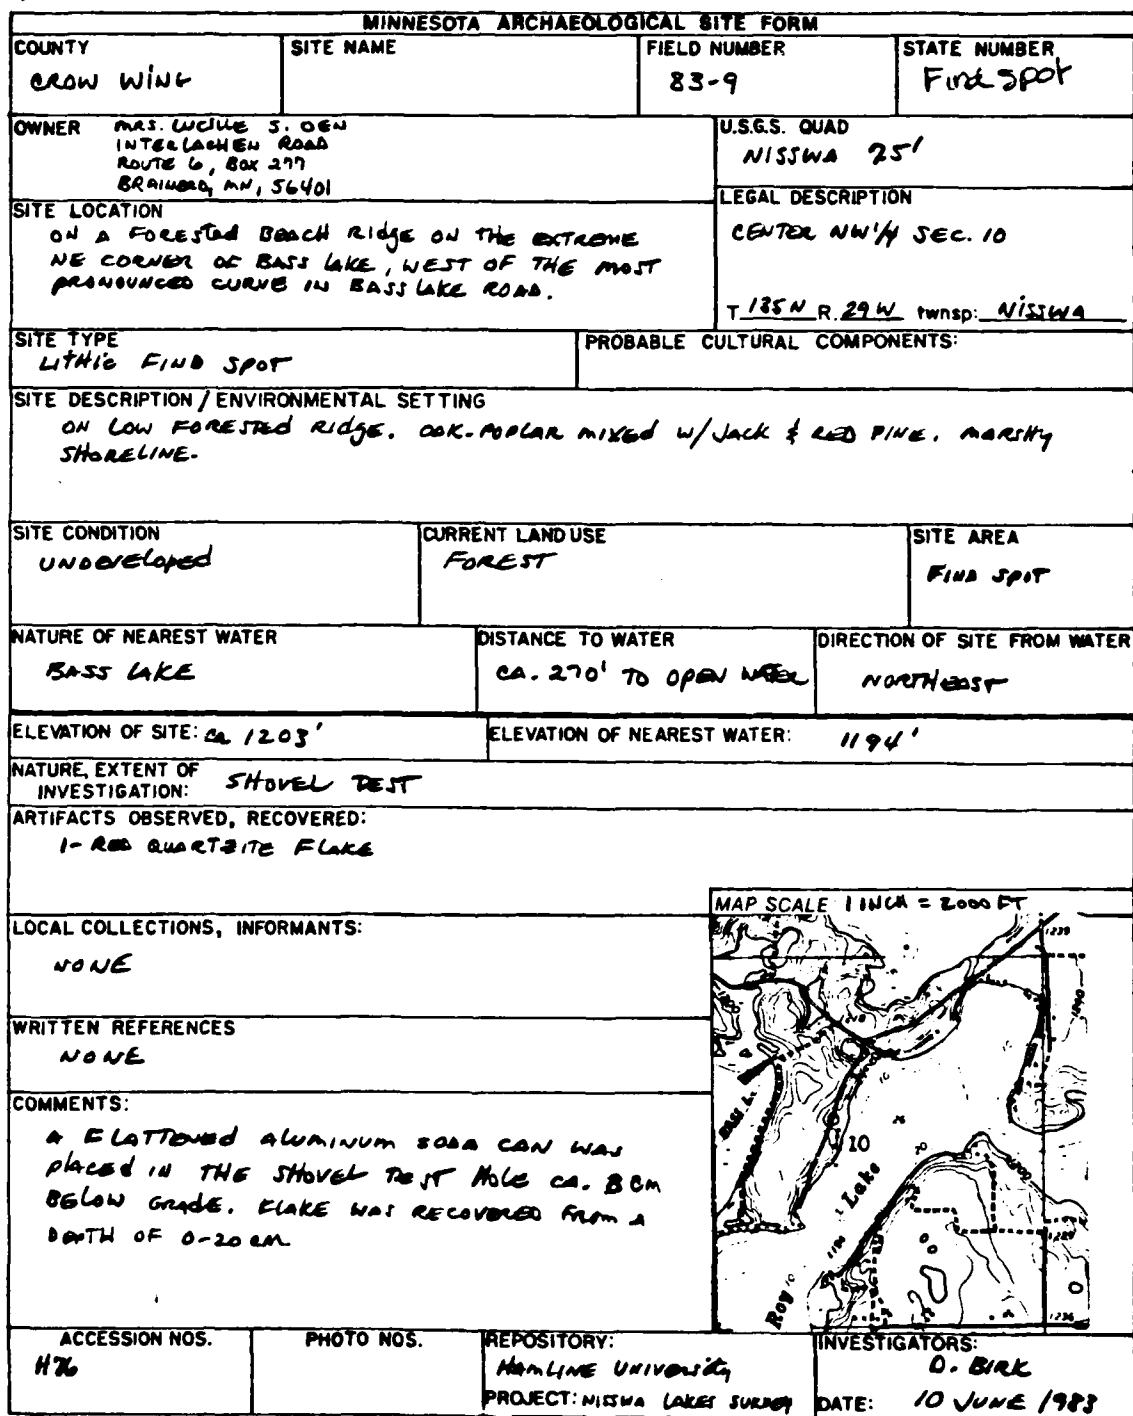 MINNESOTA ARCHAEOLOGICAL SITE FORM
COUNTY
CROW WING
SITE NAME
FIELD NUMBER
83-9
STATE NUMBER
Find spot
OWNER
MRS. LUCILLE S. OEN
INTERLACHEN ROAD
ROUTE 6, BOX 277
BRAINERD, MN, 56401
U.S.G.S. QUAD
NISSWA 25'
SITE LOCATION
ON A FORESTED BEACH RIDGE ON THE EXTREME
NE CORNER OF BASS LAKE, WEST OF THE MOST
PRONOUNCED CURVE IN BASS LAKE ROAD.
LEGAL DESCRIPTION
CENTER NW 1/4 SEC. 10
T 135 N R. 29 W twnsp: NISSWA
SITE TYPE
LITHIC FIND SPOT
PROBABLE CULTURAL COMPONENTS:
SITE DESCRIPTION / ENVIRONMENTAL SETTING
ON LOW FORESTED RIDGE. OAK-POPLAR MIXED W/ JACK & RED PINE. MARSHY
SHORELINE.
SITE CONDITION
UNDEVELOPED
CURRENT LAND USE
FOREST
SITE AREA
FIND SPOT
NATURE OF NEAREST WATER
BASS LAKE
DISTANCE TO WATER
CA. 270' TO OPEN WATER
DIRECTION OF SITE FROM WATER
NORTHEAST
ELEVATION OF SITE: CA 1203'
ELEVATION OF NEAREST WATER: 1194'
NATURE, EXTENT OF
INVESTIGATION: SHOVEL TEST
ARTIFACTS OBSERVED, RECOVERED:
1- RED QUARTZITE FLAKE
LOCAL COLLECTIONS, INFORMANTS:
NONE
WRITTEN REFERENCES
NONE
COMMENTS:
A FLATTENED ALUMINUM SODA CAN WAS
PLACED IN THE SHOVEL TEST HOLE CA. 8 CM
BELOW GRADE. FLAKE WAS RECOVERED FROM A
DEPTH OF 0-20 CM
MAP SCALE 1 INCH = 2000 FT
1239
1218
BASS L.
10
Roy Lake
1194
1200
1229
1236
ACCESSION NOS.
H76
PHOTO NOS.
REPOSITORY:
HAMLINE UNIVERSITY
PROJECT: NISSWA LAKES SURVEY
INVESTIGATORS:
D. BIRK
DATE: 10 JUNE 1983